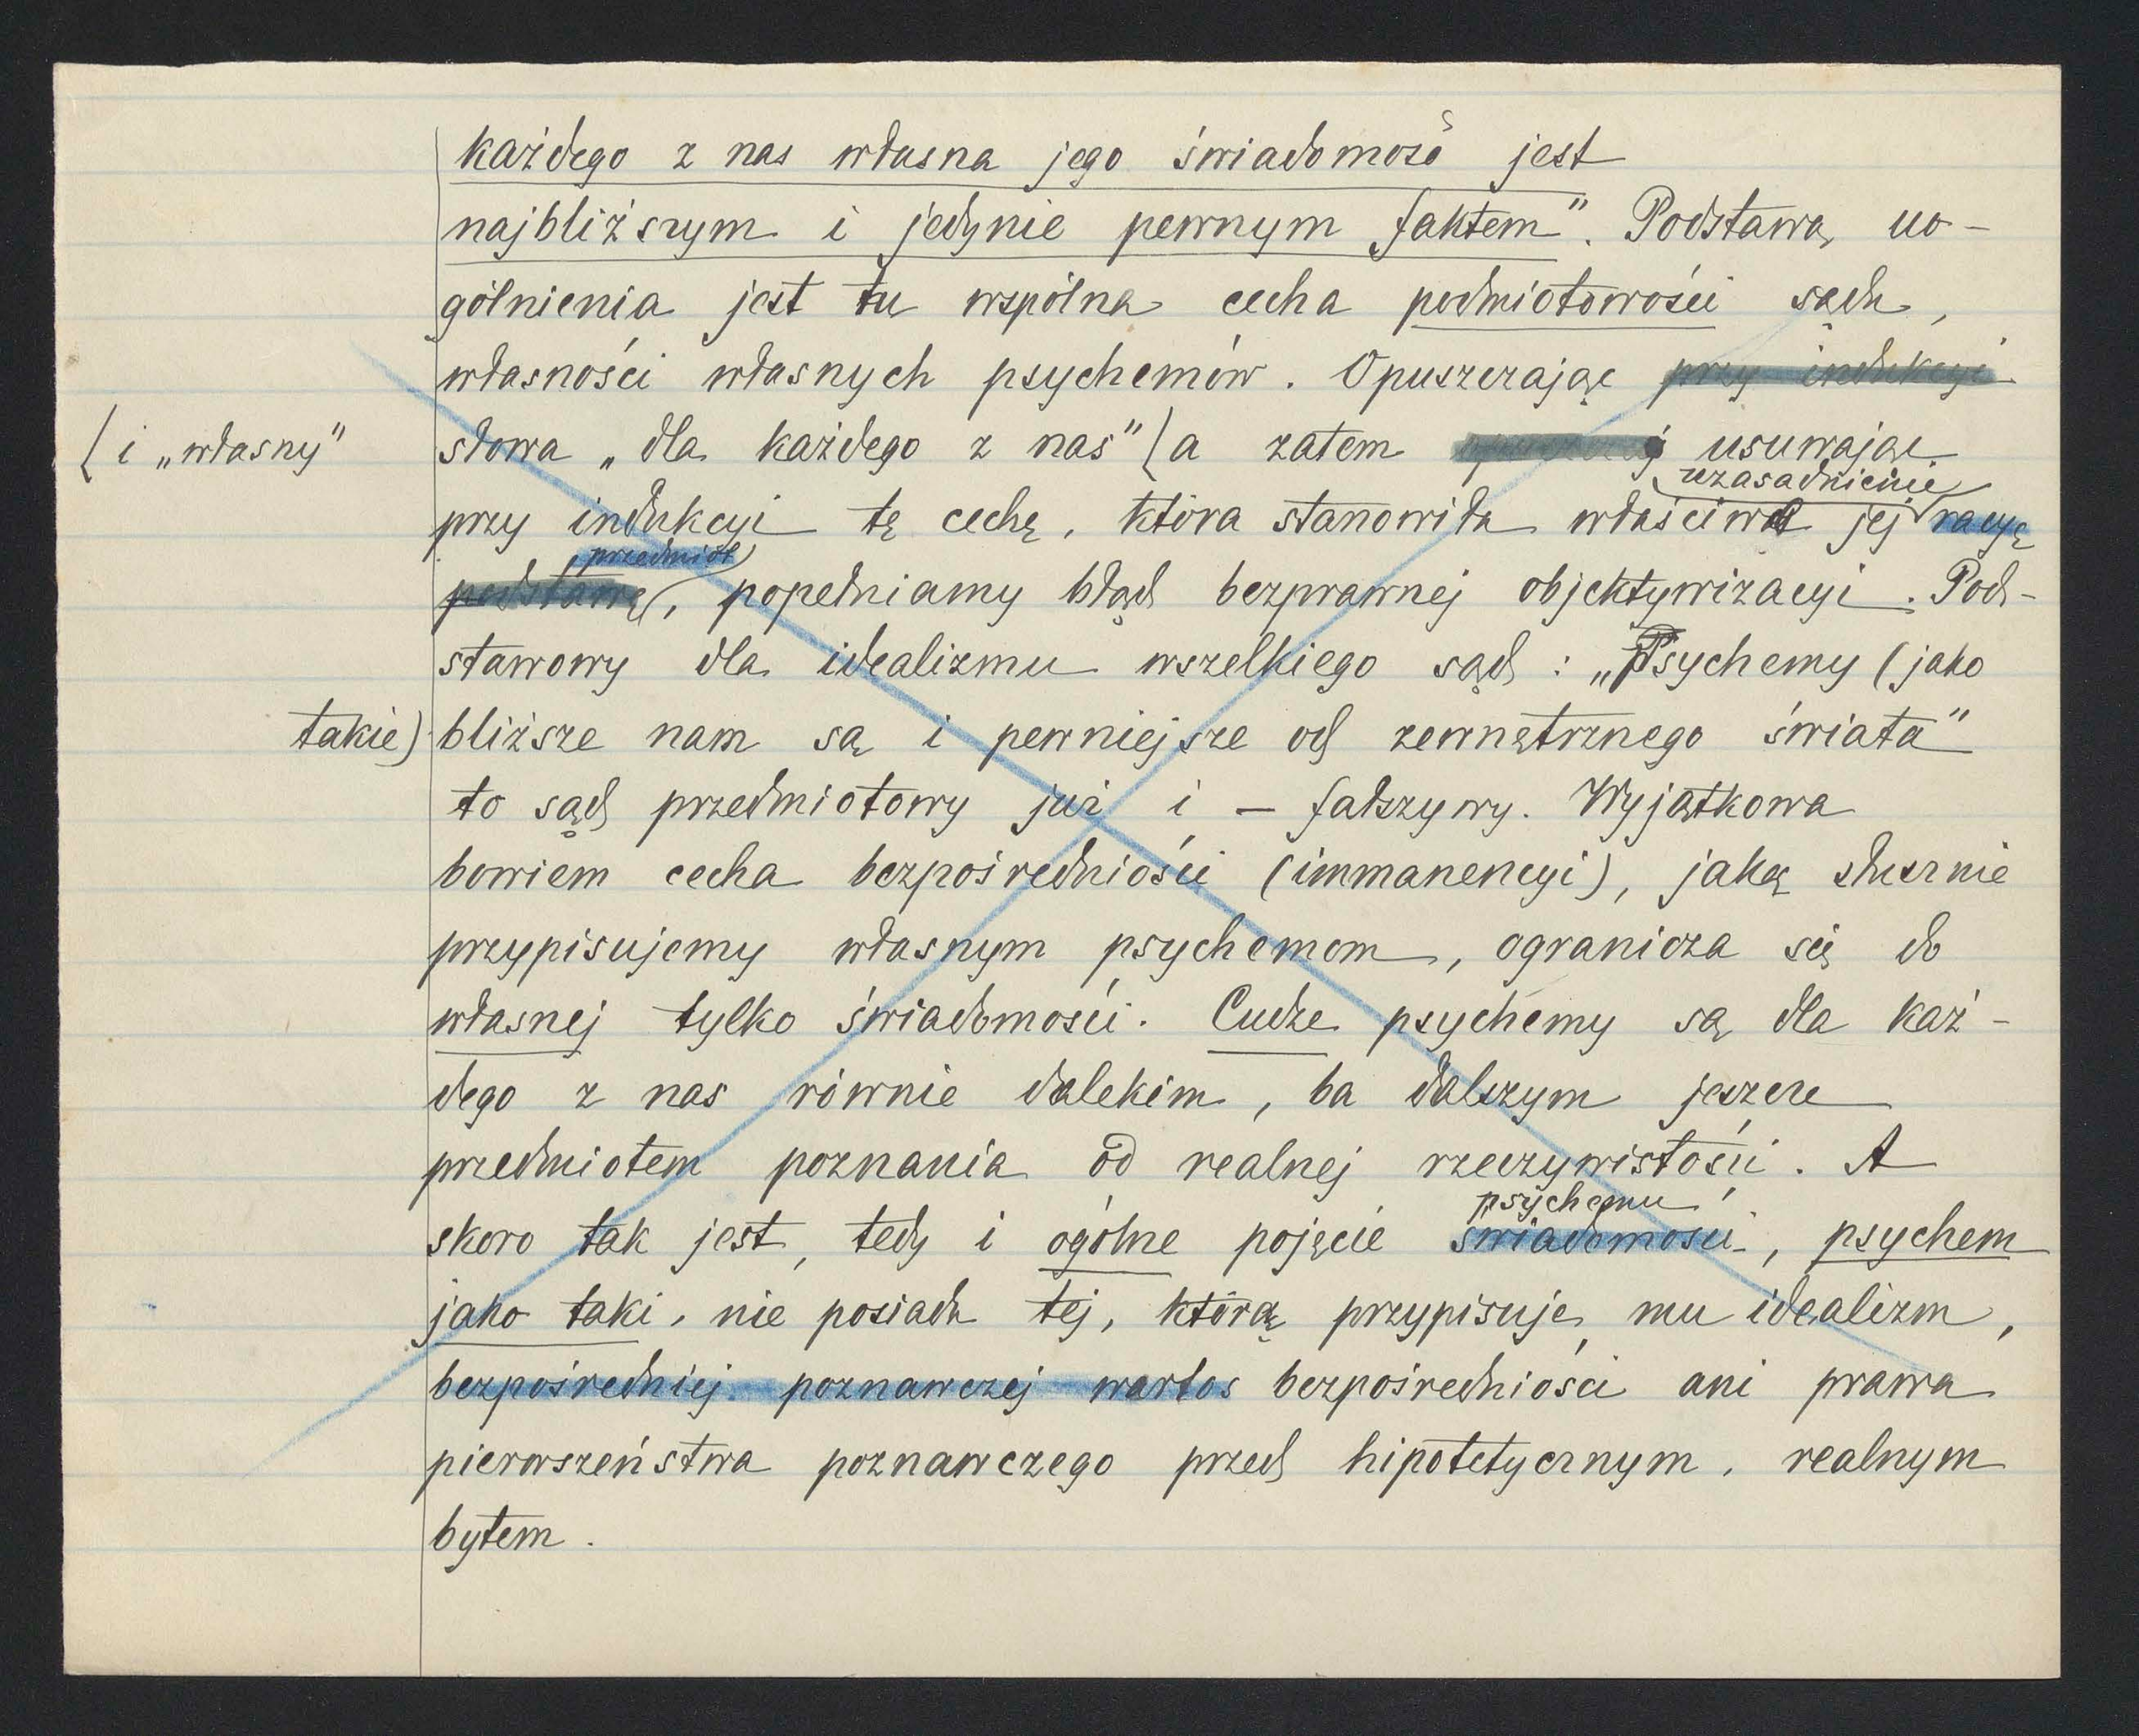 każdego z nas własna jego świadomość jest
najbliższym i jedynie pewnym faktem". Podstawą uo-
gólnienia jest tu wspólna cecha podmiotowości sądu,
własności własnych psychemów. Opuszczając przy indukcyi
( i „własny"
słowa „dla każdego z nas" ( a zatem usuwając
uzasadnienie
przy indukcyi tę cechę, która stanowiła właściwe jej racyę
przedmiot
podstawę, popełniamy błąd bezprawnej objektywizacyi. Pod-
stawowy dla idealizmu wszelkiego sąd : „Psychemy (jako
takie) bliższe nam są i pewniejsze od zewnętrznego świata"
to sąd przedmiotowy już i — fałszywy. Wyjątkowa
bowiem cecha bezpośredniości (immanencyi), jaką słusznie
przypisujemy własnym psychemom, ogranicza się do
własnej tylko świadomości. Cudze psychemy są dla każ-
dego z nas równie dalekim, ba dalszym jeszcze
przedmiotem poznania od realnej rzeczywistości. A
psychemu
skoro tak jest, tedy i ogólne pojęcie świadomości, psychem
jako taki, nie posiada tej, którą przypisuje mu idealizm,
bezpośredniej poznawczej wartos bezpośredniości ani prawa
pierwszeństwa poznawczego przed hipotetycznym, realnym
bytem.